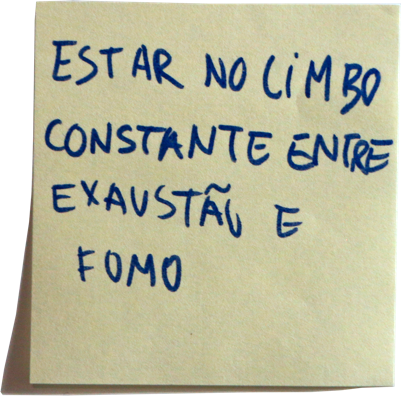 ESTAR NO LIMBO
CONSTANTE ENTRE
EXAUSTÃO E
FOMO